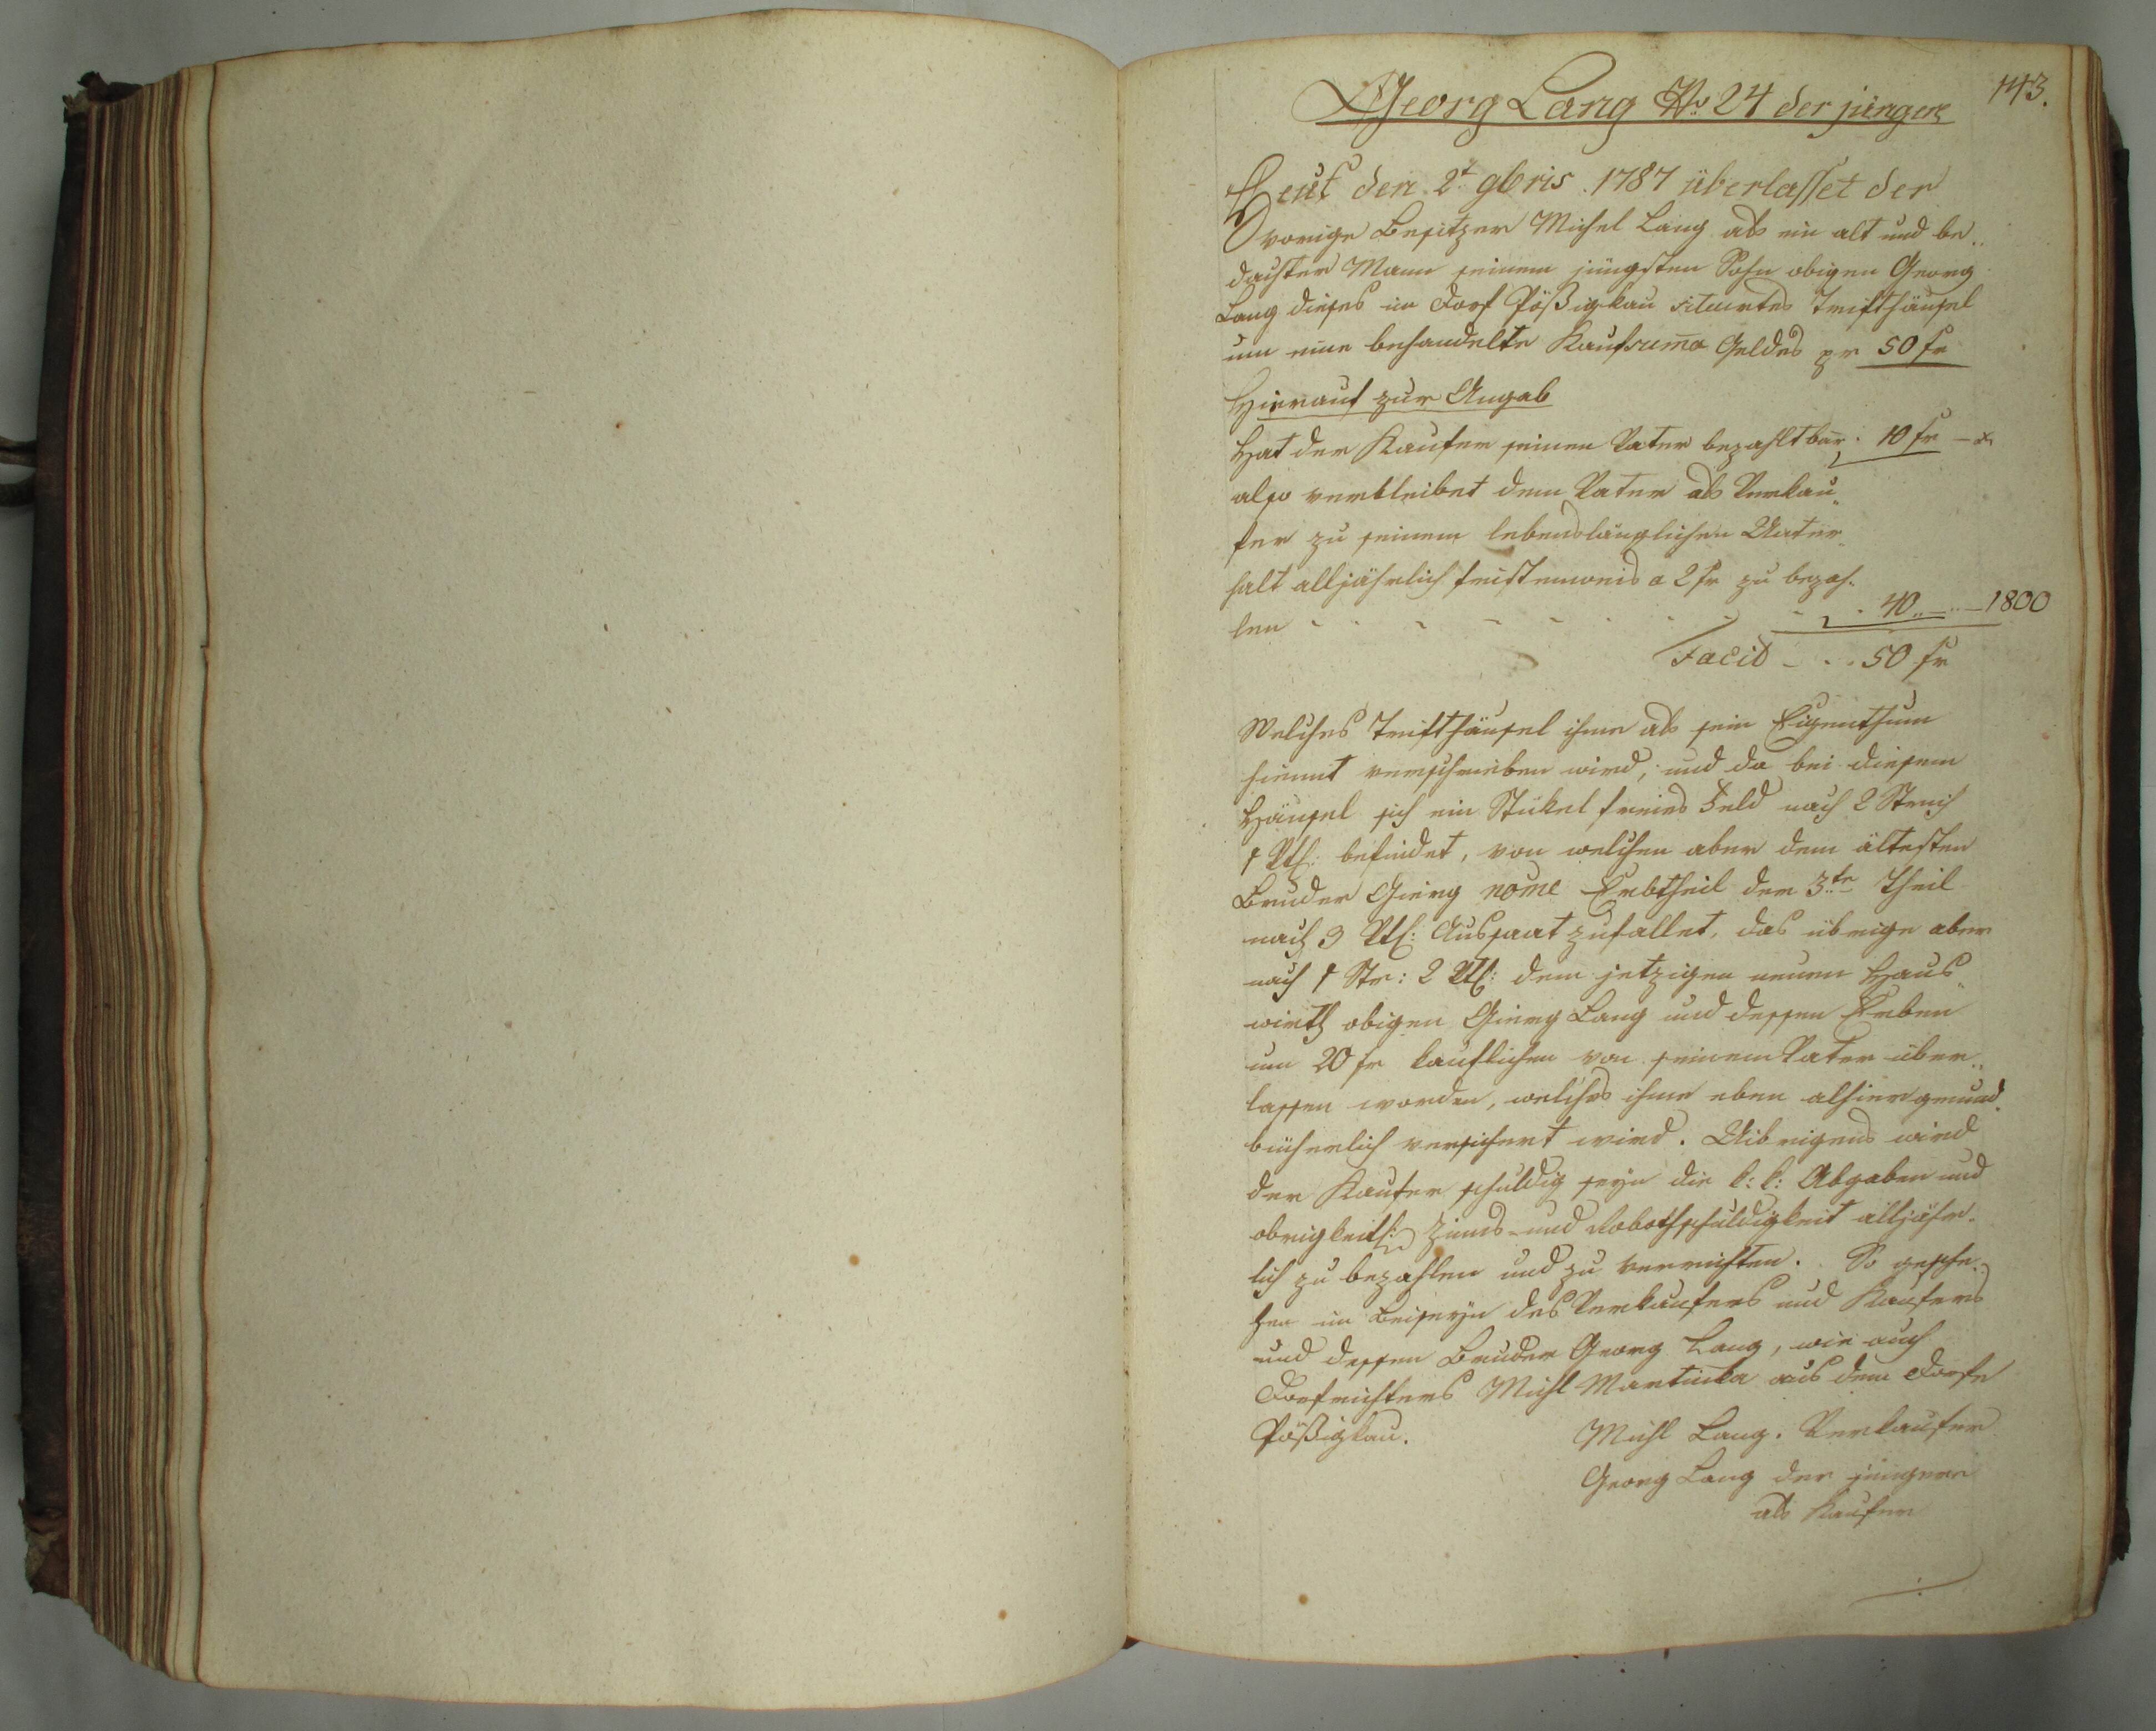 143.
Georg Lang No 24 der jüngere
Heut den 2t 9bris 1787 überlasset der
vorige Besitzer Michel Lang als ein alt und be„
dachter Mann seinem jüngsten Sohn obigen Georg
Lang dieses im Dorf Pößigkau situirtes Trifthäusel
um eine behandelte Kaufsum̅a Geldes pr 50 fr
Hierauf zur Angab
Hat der Kaufer seinen Vater bezahlt bar . 10 fr – x
also verbleibet dem Vater als Verkau„
fer zu seinem lebenslänglichen Unter„
halt alljährlich fristenweis a 2 fr zu bezah„
len - - - - - - - . 40 „ – „ – 1800
Facit - . . 50 fr
Welches Trifthäusel ihme als sein Eigenthum
hiemit verschrieben wird, und da bei diesem
Häusel sich ein Stükel freies Feld nach 2 Strich
1 Vtl: befindet, von welchen aber dem ältesten
Bruder Georg nome Erbtheil der 3te Theil
nach 3 Vtl: Aussaat zufallet, das übrige aber
nach 1 Str: 2 Vtl: dem jetzigen neuen Haus„
wirth obigen Georg Lang und dessen Erben
um 20 fr kauflichen von seinem Vater über„
lassen worden, welches ihme eben alhier grund„
bücherlich versichert wird. Uibrigens wird
der Kaufer schuldig seyn die k: k: Abgaben und
obrigkeitl: Zinns- und Robothschuldigkeit alljähr„
lich zu bezahlen und zu verrichten. So gesche„
hen im Beiseyn des Verkaufers und Kaufers
und dessen Bruder Georg Lang, wie auch
Dorfrichters Michl Martinka aus dem Dorfe
Pößigkau. Michl Lang. Verkaufer
Georg Lang der jüngere
als Kaufer